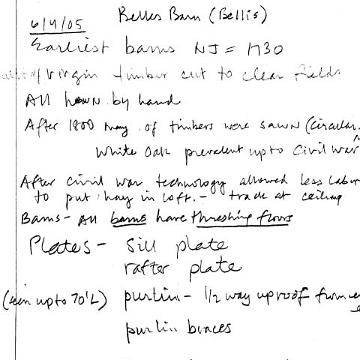 6/4/05 Belles Barn (Bellis)
Earliest barns NJ = 1730
of Virgin timber cut to clear fields
All hewn by hand
After 1800 many of timbers were sawn (Circular
White Oak prevalent up to Civil War
After civil war technology allowed less labor
to put hay in loft. - track at ceiling
Barns - All barns have threshing floors
Plates - sill plate
rafter plate
(seen up to 70'L) purlin - 1/2 way up roof from
purlin braces